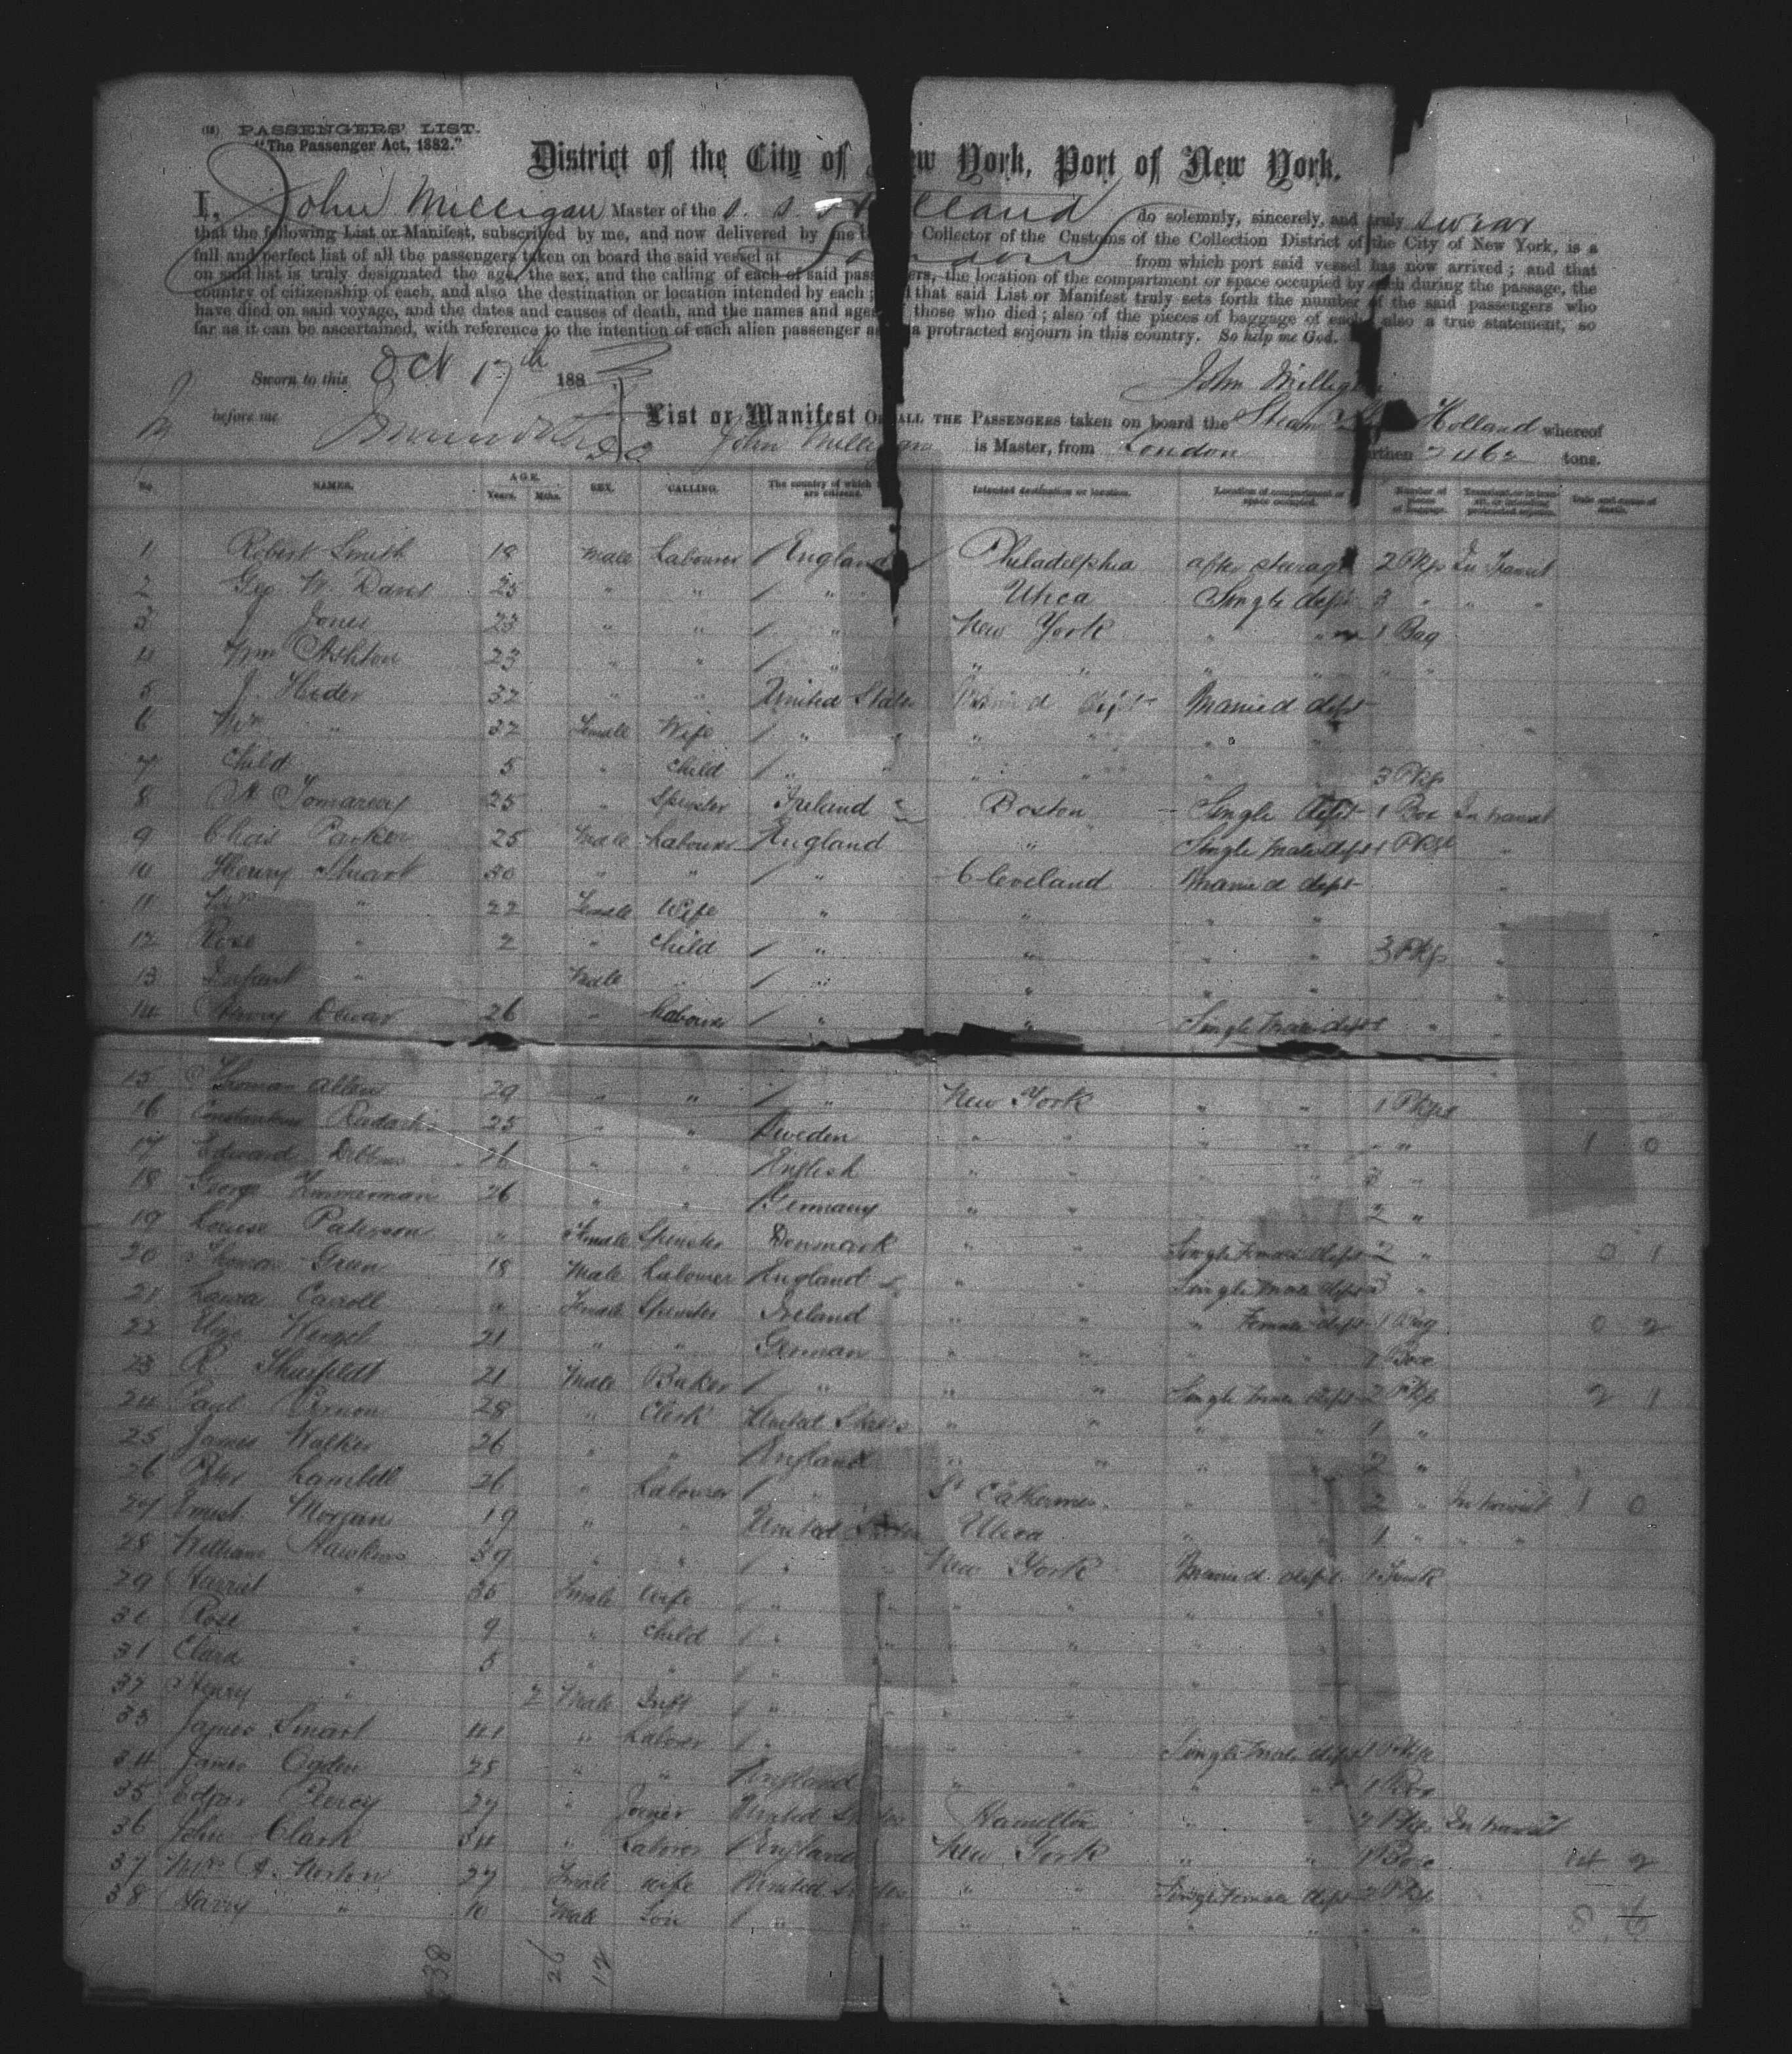 (18) PASSENGERS' LIST.
"The Passenger Act, 1882."
District of the City of New York, Port of New York.
I, John Milligan Master of the S. S. Holland do solemnly, sincerely, and truly swear
that the following List or Manifest, subscribed by me, and now delivered by me Collector of the Customs of the Collection District of the City of New York, is a
full and perfect list of all the passengers taken on board the said vessel at London from which port said vessel has now arrived; and that
on said list is truly designated the age, the sex, and the calling of each of said passengers, the location of the compartment or space occupied by each during the passage, the
country of citizenship of each, and also the destination or location intended by each; that said List or Manifest truly sets forth the number of the said passengers who
have died on said voyage, and the dates and causes of death, and the names and ages those who died; also of the pieces of baggage of each also a true statement, so
far as it can be ascertained, with reference to the intention of each alien passenger a protracted sojourn in this country. So help me God.
Sworn to this Oct 17th 188 John Milligan
before me
List or Manifest OF ALL THE PASSENGERS taken on board the Steam Holland whereof
John Milligan is Master, from London burthen tons.
No. NAMES. AGE. Years. Mths. SEX. CALLING. The country of which are citizens. Intended destination or location. Location of compartment or space occupied. Number of pieces of baggage. Transient, or in transit, or intending protracted sojourn. Date and cause of death.
1 Robert Smith 18 Male Labourer England Philadelphia after steerage 2 Pkgs In Transit
2 Geo W. Davis 25 " " " Utica Single dept 3 " " "
3 J Jones 23 " " " New York " " 1 Bag
4 Wm Ashton 23 " " " " " " " " "
5 J. 32 " " United States Married dept
6 Mrs " 32 Female Wife " " " " " "
7 Child 5 " child " " " " 3 Pkgs
8 25 " Spinster Ireland Boston Single dept 1 Box In transit
9 Chas Parker 25 Male Labourer England " Single Male dept 1 Pkge "
10 Henry Stuart 30 " " " Cleveland Married dept "
11 Mrs " 22 Female Wife " " " " "
12 Rose " 2 " child " " " 3 Pkgs "
13 Infant " Male " " " " " "
14 Harry Dewar 26 " Labourer " " Single Male dept 1 " "
15 Thomas Allen 29 " " " New York " " 1 Pkge
16 25 " " Sweden " " " " " " 1 0
17 Edward 16 " " English " " " " 3 "
18 George Zimmerman 26 " " Germany " " 2 "
19 Louise Paterson " Female Spinster Denmark " " Single Female dept 2 " 0 1
20 Thomas Green 18 Male Labourer England " " Single Male dept 3 "
21 Laura Carroll " Female Spinster Ireland " " " Female dept 1 Bag 0 2
22 21 " " German " " " " Box
23 R. 21 Male Baker " " " Single Male dept 2 Pkgs 2 1
24 Paul Vernon 28 " Clerk United States " " " " 1 "
25 James Walker 26 " " England " " " " 2 "
26 Peter 26 " Labourer " " " 2 " In transit 1 0
27 Ernest Morgan 19 " " United States Utica " " 1 " " "
28 William Hawkins 39 " " " " New York Married dept 1 Trunk
29 Harriet " 35 Female Wife " " " " " "
30 Rose " 9 " child " " " "
31 Clara " 5 " " " " " " " "
32 Henry " 2 Male Inft " " " "
33 James Smart 41 " Laborer " " " Single Male dept 1 Pkge
34 James Ogden 28 " " England " " " " 1 Box
35 Edgar Percy 27 " Joiner United States Hamilton " " 2 Pkgs In transit
36 John Clark 34 " Laborer England New York " " 1 Box 4 2
37 Mrs A. Norton 27 Female wife United States " " Single Female dept 2 Pkgs
38 Harry " 10 Male Son " " " " " " " 8 6
38 26 12